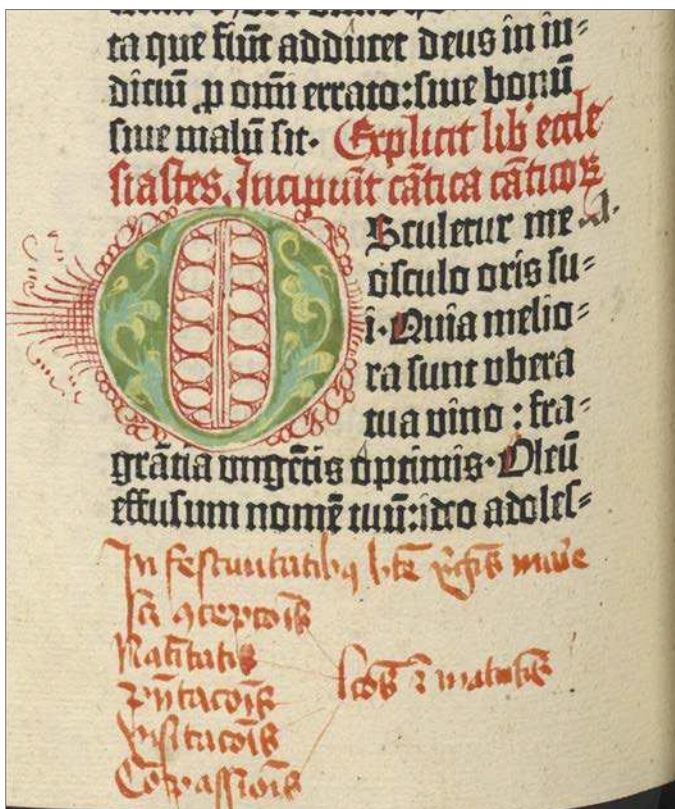 ta que fiūt adducet deus in iu=
diciū ꝓ omī errato: siue bonū
siue malū sit. Explicit lib' eccle
siastes. Incipiūt cātica cāticoꝝ
Osculetur me
osculo oris su=
i. Quia melio=
ra sunt vbera
tua vino: fra=
grātia vngētis optimis. Oleū
effusum nomē tuū: ideo adoles=
In festiuitatibꝫ btē marie
ꝯceptōis
Natiuitatis
pn̄tacōis
visitacōis
Cōpassiōis
lcōs ī matutīs